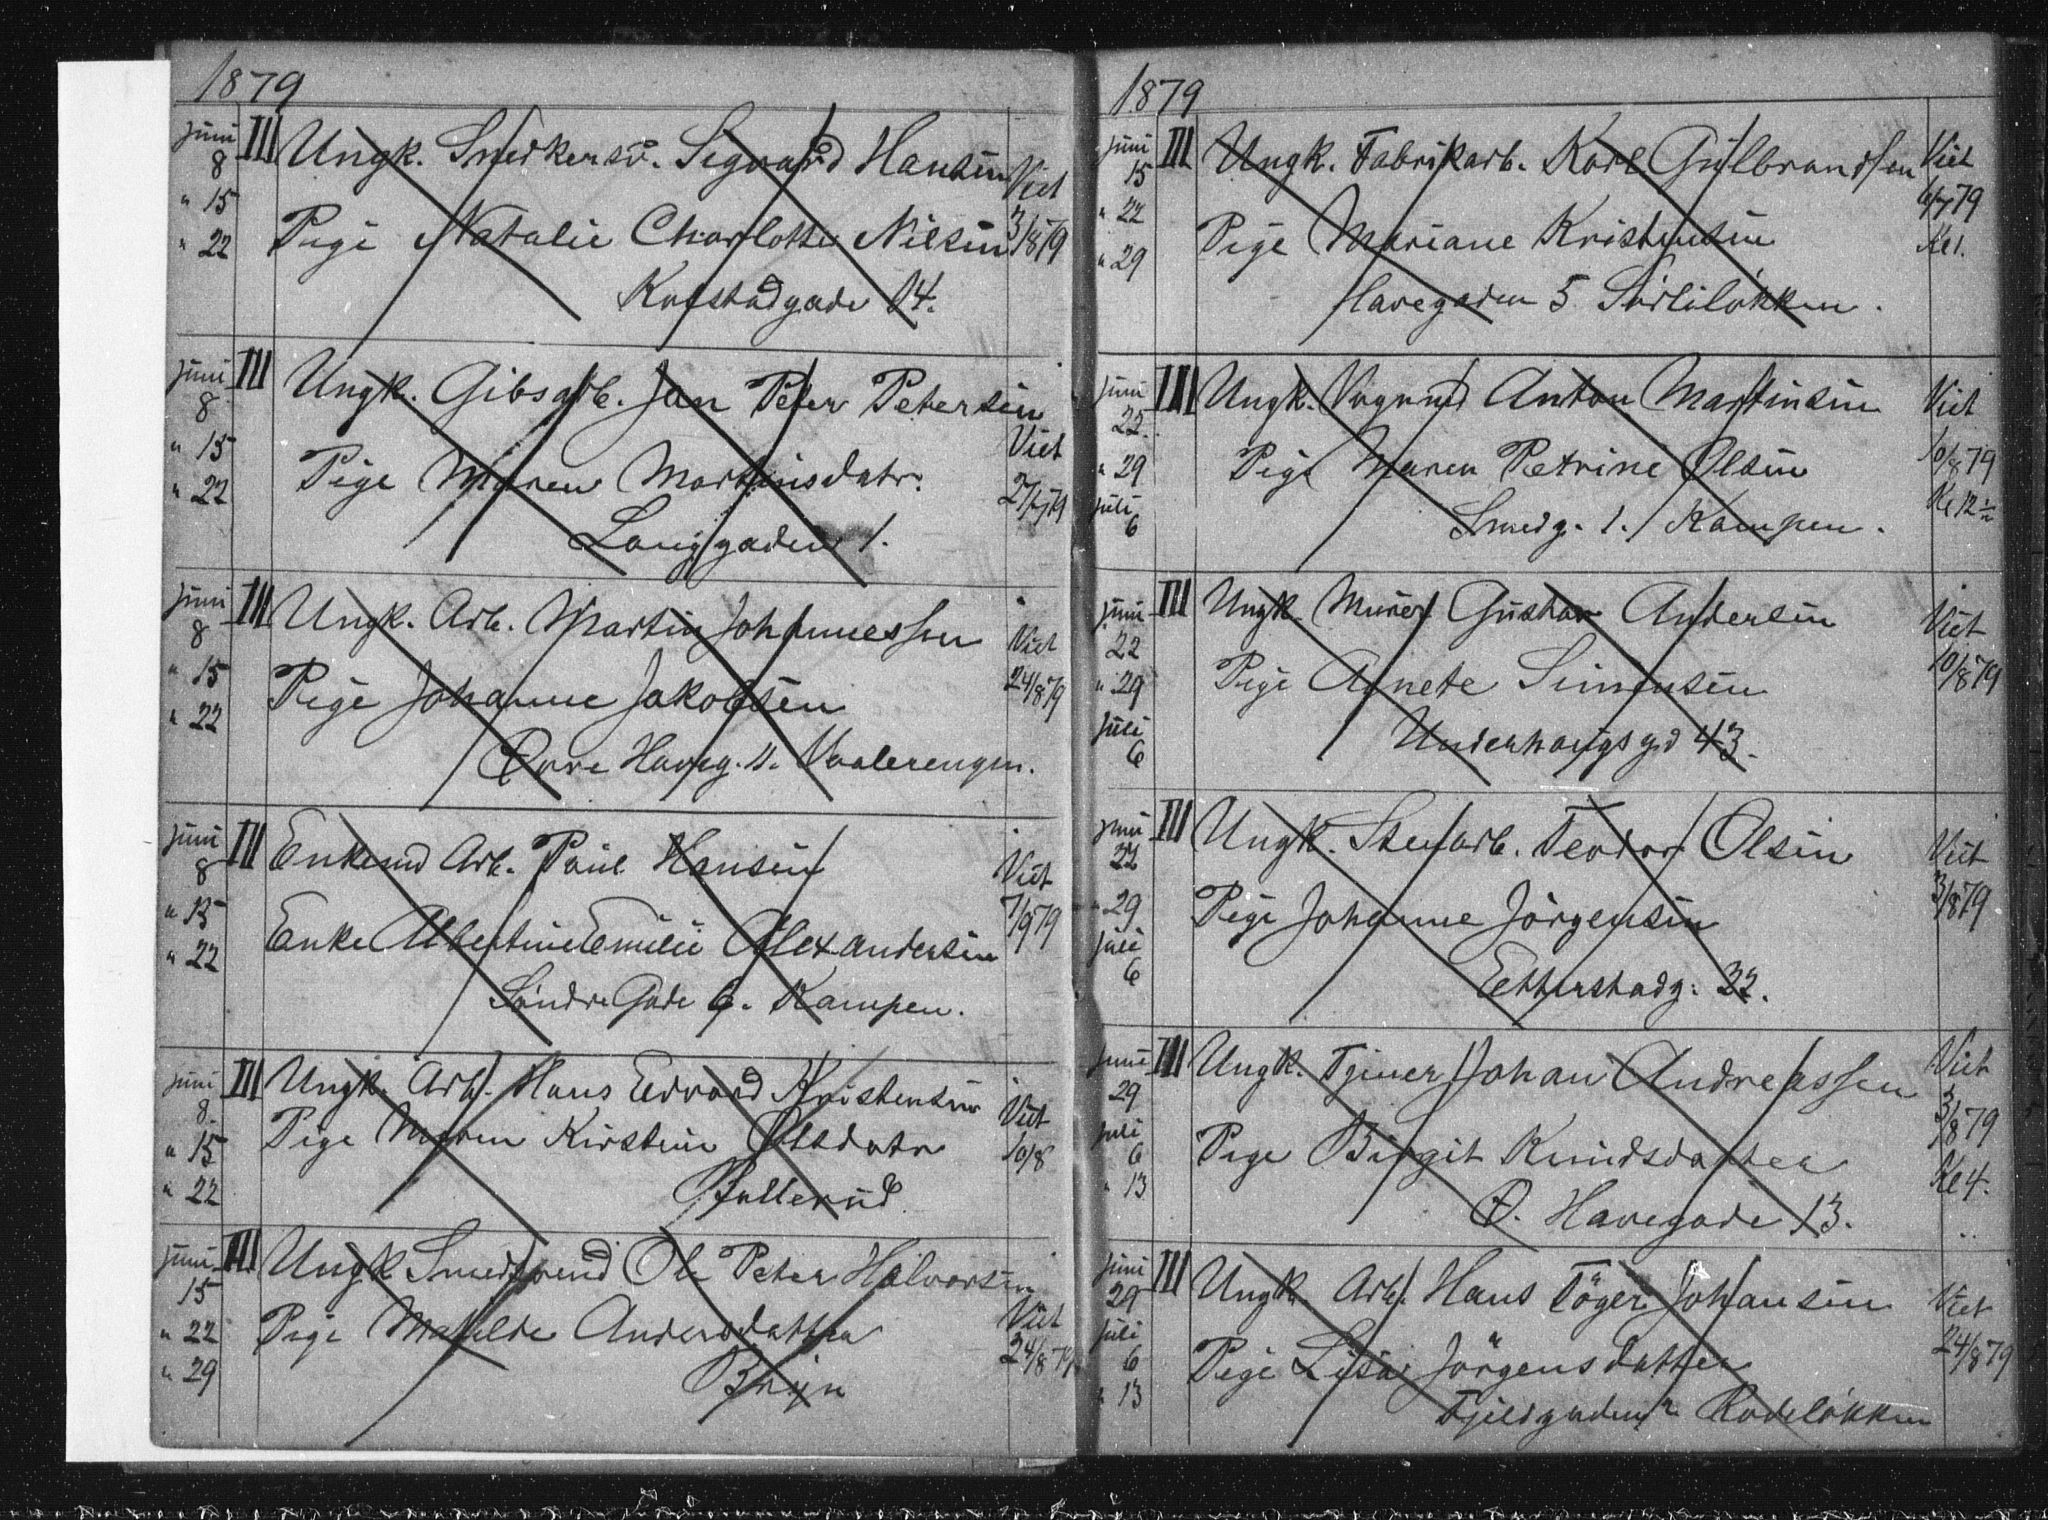 1879
Juni 8 III Ungk. Snedkersv. Sigvard Hansen Viet
" 15 Pige Natalie Charlotte Nilsen 3/8 79
" 22 Kolstadgade 14.
Juni 8 III Ungk. Gibsarb. Jan Peter Petersen Viet
" 15 Pige Maren Martinsdatr. 27/7 79
" 22 Langgaden 1.
Juni 8 III Ungk. Arb. Martin Johannessen Viet
" 15 Pige Johanne Jakobsen 24/8 79
" 22 Øvre Haveg. 11. Vaalerengen.
Juni 8 III Enkemd Arb. Paul Hansen Viet
" 15 Enke Albertine Emilie Alexandersen 7/9 79
" 22 Søndre Gade 6. Kampen.
Juni 8. III Ungk. Arb. Hans Edvard Kristensen Viet
" 15 Pige Maren Kirstine Olsdatr 10/8
" 22 Ballerud.
Juni 15 III Ungk Smedsvend Ole Peter Halvorsen Viet
" 22 Pige Matilde Andersdatter 24/8 79
" 29 Bryn
1879
Juni 15 III Ungk. Fabrikarb. Karl Gulbrandsen Viet
" 22 Pige Mariane Kristensen 6/7 79
" 29 Havegaden 5 Sørliløkken. Kl 1.
Juni 22. III Ungk. Vognmd Anton Martinsen Viet
" 29 Pige Maren Petrine Olsen 10/8 79
Juli 6 Smedg. 1. Kampen. Kl 12 ½
Juni 22 III Ungk. Murer Gustav Andersen Viet
" 29 Pige Agnete Simensen 10/8 79
Juli 6 Underhaugsgd 43.
Juni 22 III Ungk. Stenarb. Teodor Olsen Viet
" 29 Pige Johanne Jörgensen 3/8 79
Juli 6 Etterstadg. 32.
Juni 29 III Ungk. Tjener Johan Andreassen Viet
Juli 6 Pige Birgit Knudsdatter 3/8 79
" 13 Ø. Havegade 13. Kl 4.
Juni 29 III Ungk. Arb. Hans Töger Johansen Viet
Juli 6 Pige Lisa Jörgensdatter 24/8 79
" 13 Fjeldgaden 2 Rodeløkken